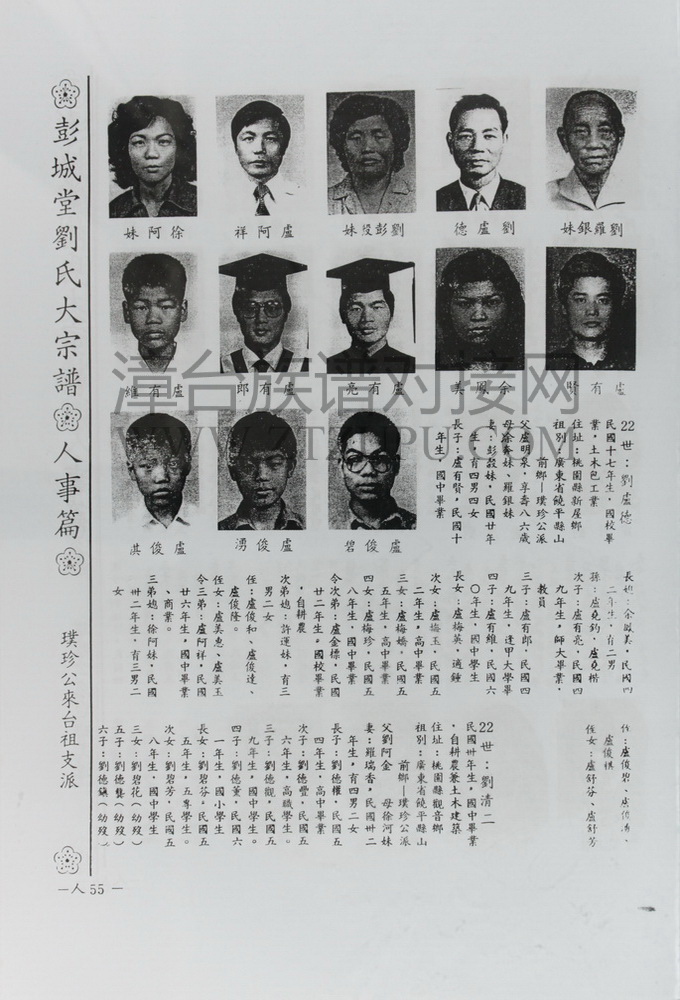 彭城堂劉氏大宗譜
人事篇
璞珍公來台祖支派
—人 55 —
劉羅銀妹
劉盧德
劉彭叚妹
盧阿祥
徐阿妹
盧有賢
余鳳美
盧有亮
盧有郎
盧有維
盧俊碧
盧俊湧
盧俊淇
漳台族谱对接网
WWW.ZTZUPU.COM
22世：劉盧德
民國十七年生，國校畢
業，土木包工業
住址：桃園縣新屋鄉
祖別：廣東省饒平縣山
前鄉—璞珍公派
父盧明泉，享壽八六歲
母徐 妹、羅銀妹
妻：彭叚妹，民國廿年
生，育四男四女
長子：盧有賢，民國十
年生，國中畢業
長媳：余鳳美，民國四
二年生，育二男
孫：盧堯鈞、盧堯楷
次子：盧有亮，民國四
九年生，師大畢業，
教員
三子：盧有郎，民國四
九年生，逢甲大學畢
四子：盧有維，民國六
〇年生，國中學生
長女：盧梅英，適鍾
次女：盧梅玉，民國五
二年生，高中畢業
三女：盧梅嬌，民國五
五年生，高中畢業
四女：盧梅珍，民國五
八年生，國中畢業
令次弟：盧金標，民國
廿二年生，國校畢業
，自耕農
次弟媳：許運妹，育三
男二女
侄：盧俊和、盧俊達、
盧俊隆。
侄女：盧美惠、盧美玉
令三弟：盧阿祥，民國
廿六年生，國中畢業
、商業。
三弟媳：徐阿妹，民國
卅二年生，育三男二
女
侄：盧俊碧、盧俊湧、
盧俊祺
侄女：盧舒芬、盧舒芳
22世：劉清二
民國卅年生，國中畢業
，自耕農兼土木建築
住址：桃園縣觀音鄉
祖別：廣東省饒平縣山
前鄉—璞珍公派
父劉阿金 母徐河妹
妻：羅瑞香，民國卅二
年生，育四男二女
長子：劉德權，民國五
四年生，高中畢業
次子：劉德豐，民國五
六年生，高職學生。
三子：劉德觀，民國五
九年生，國中學生。
四子：劉德薰，民國六
一年生，國小學生
長女：劉碧芬，民國五
五年生，五專學生。
次女：劉碧芳，民國五
八年生，國中學生
三女：劉碧花（幼歿）
五子：劉德龔（幼歿）
六子：劉德鎮（幼歿）